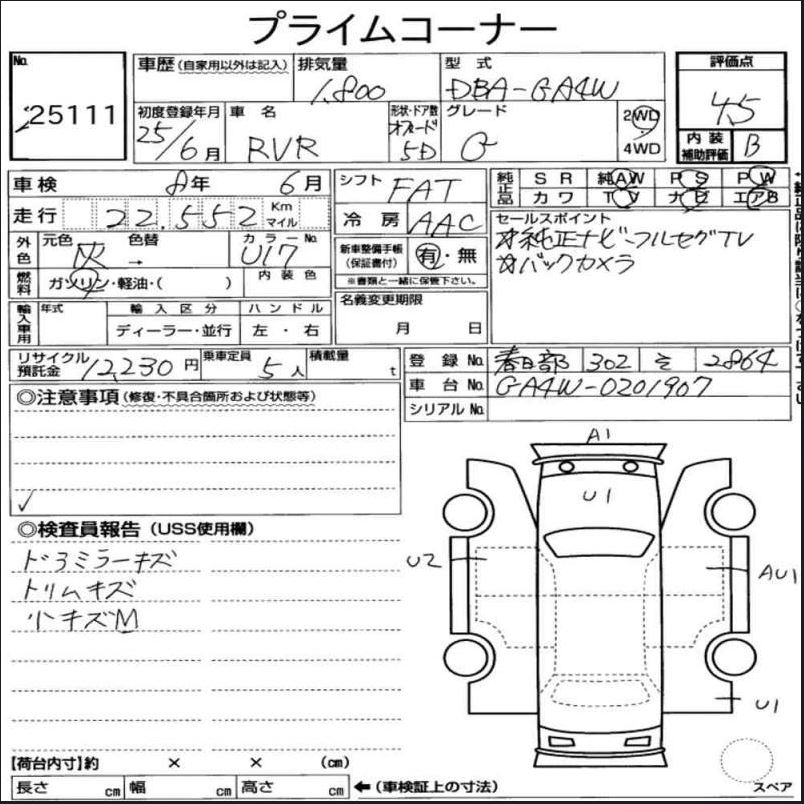 プライムコーナー
No. 25111
車歴(自家用以外は記入) 排気量 1,800 型式 DBA-GA4W 評価点 4.5
初度登録年月 25/6月 車名 RVR 形状・ドア数 5D グレード G 2WD 4WD 内装補助評価 B
車検 8年 6月 シフト FAT 純正品 SR 純AW PS PW
走行 22,552 Km マイル 冷房 AAC カワ TV ナビ エアB
外色 元色 灰 色替 → カラーNo. U17 新車整備手帳(保証書付) 有・無 セールスポイント
※書類と一緒に保管下さい。 ☆純正ナビ-フルセグTV
燃料 ガソリン・軽油・( ) 内装色 ☆バックカメラ
輸入車用 年式 輸入区分 ハンドル 名義変更期限
ディーラー・並行 左・右 月 日
リサイクル預託金 12,230円 乗車定員 5人 積載量 t 登録No. 春日部 302 そ 2864
車台No. GA4W-0201907
シリアルNo.
◎注意事項(修復・不具合箇所および状態等)
✓
◎検査員報告(USS使用欄)
ドアミラーキズ
トリムキズ
小キズM
A1
U1
U2
AU1
U1
スペア
【荷台内寸】約 × × (cm)
長さ cm 幅 cm 高さ cm ←(車検証上の寸法)